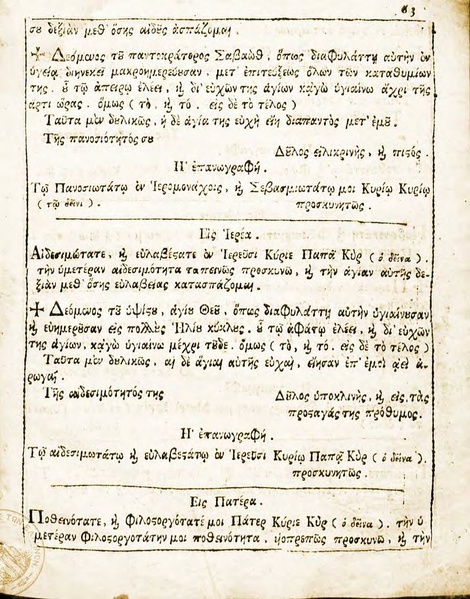 63
σου δεξιὰν μεθ' ὅσης αἰδοῦς ἀσπάζομαι.
✠ Δεόμενος τοῦ παντοκράτορος Σαβαὼθ, ὅπως διαφυλάττῃ αὐτὴν ἐν
ὑγείᾳ διηνεκεῖ μακροημερεύουσαν, μετ' ἐπιτεύξεως ὅλων τῶν καταθυμίων
της. οὗ τῷ ἀπείρῳ ἐλέει, καὶ δι' εὐχῶν της ἁγίων κἀγὼ ὑγιαίνω ἄχρι τῆς
ἄρτι ὥρας. ὅμως (τὸ. καὶ τό. εἰς δὲ τὸ τέλος)
Ταῦτα μὲν δουλικῶς, ἡ δὲ ἁγία της εὐχὴ εἴη διαπαντὸς μετ' ἐμοῦ.
Τῆς πανοσιότητός σου
Δοῦλος εἰλικρινὴς, καὶ πιστός.
Ἡ ἐπανωγραφή.
Τῷ Πανοσιωτάτῳ ἐν Ἱερομονάχοις, καὶ Σεβασμιωτάτῳ μοι Κυρίῳ Κυρίῳ
(τῷ δεῖνι). προσκυνητῶς.
Εἰς Ἱερέα.
Αἰδεσιμώτατε, καὶ εὐλαβέστατε ἐν Ἱερεῦσι Κύριε Παπᾶ Κὺρ (ὁ δεῖνα).
τὴν ὑμετέραν αἰδεσιμότητα ταπεινῶς προσκυνῶ, καὶ τὴν ἁγίαν αὐτῆς δε-
ξιὰν μεθ' ὅσης εὐλαβείας κατασπάζομαι.
✠ Δεόμενος τοῦ ὑψίστου, ἁγίου Θεοῦ, ὅπως διαφυλάττῃ αὐτὴν ὑγιαίνουσαν
καὶ εὐημεροῦσαν εἰς πολλοὺς Ἡλίου κύκλους. οὗ τῷ ἀφάτῳ ἐλέει, καὶ δι' εὐχῶν
της ἁγίων, κἀγὼ ὑγιαίνω μέχρι τοῦδε. ὅμως (τὸ, καὶ τό. εἰς δὲ τὸ τέλος)
Ταῦτα μὲν δουλικῶς, αἱ δὲ ἅγιαι αὐτῆς εὐχαὶ, εἴησαν ἐπ' ἐμοὶ ἀεὶ ἀ-
ρωγαί.
Τῆς αἰδεσιμότητός της Δοῦλος ὑποκλινὴς, καὶ εἰς τὰς
προσταγάς της πρόθυμος.
Ἡ ἐπανωγραφή.
Τῷ αἰδεσιμωτάτῳ καὶ εὐλαβεστάτῳ ἐν Ἱερεῦσι Κυρίῳ Παπᾷ Κὺρ (ὁ δεῖνα).
προσκυνητῶς.
Εἰς Πατέρα.
Ποθεινότατε, καὶ Φιλοστοργότατέ μοι Πάτερ Κύριε Κὺρ (ὁ δεῖνα). τὴν ὑ
μετέραν Φιλοστοργοτάτην μοι ποθεινότητα, υἱοπρεπῶς προσκυνῶ, καὶ τὴν